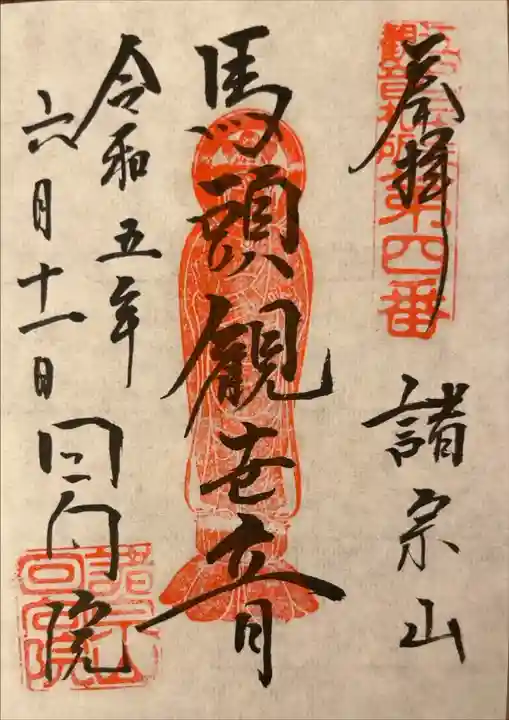 奉拝
観音札所第四番
諸宗山
馬頭観世音
令和五年
六月十一日 回向院
諸宗山
回向院